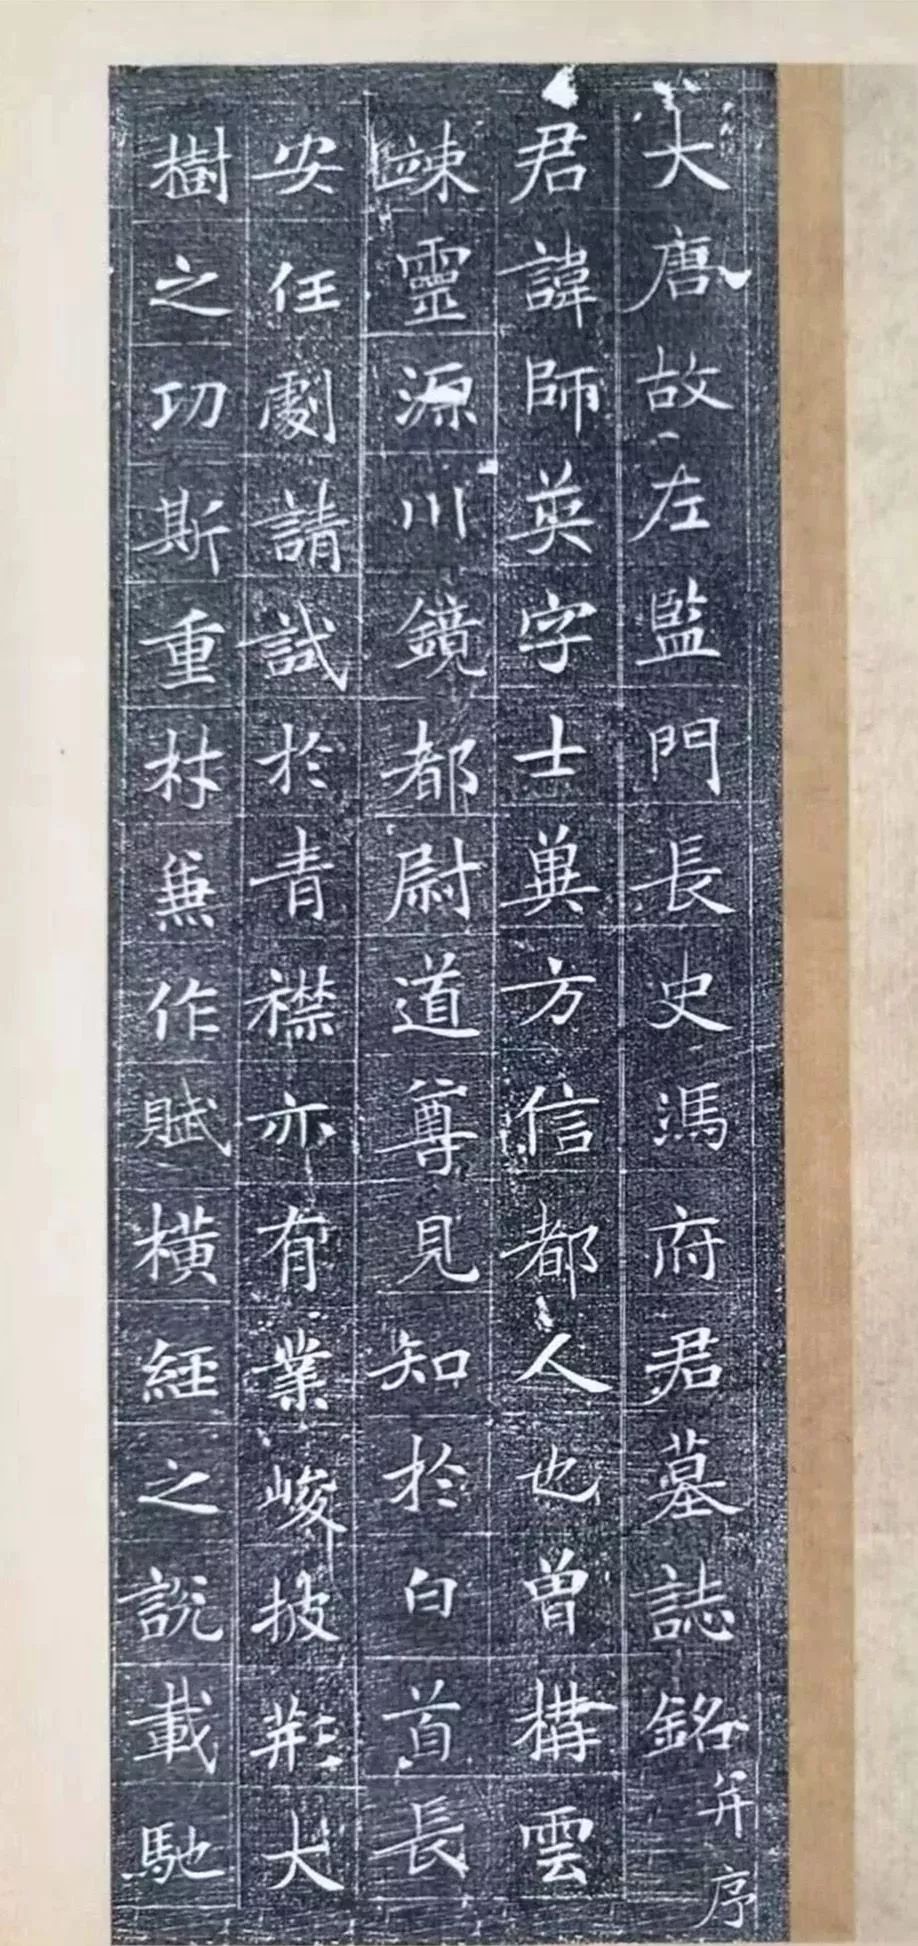 大唐故左監門長史馮府君墓誌銘并序
君諱師英字士㒹方信都人也曾構雲
竦靈源川鏡都尉道尊見知於白首長
安任劇請試於青襟亦有業峻披荊大
樹之功斯重材兼作賦橫經之說載馳